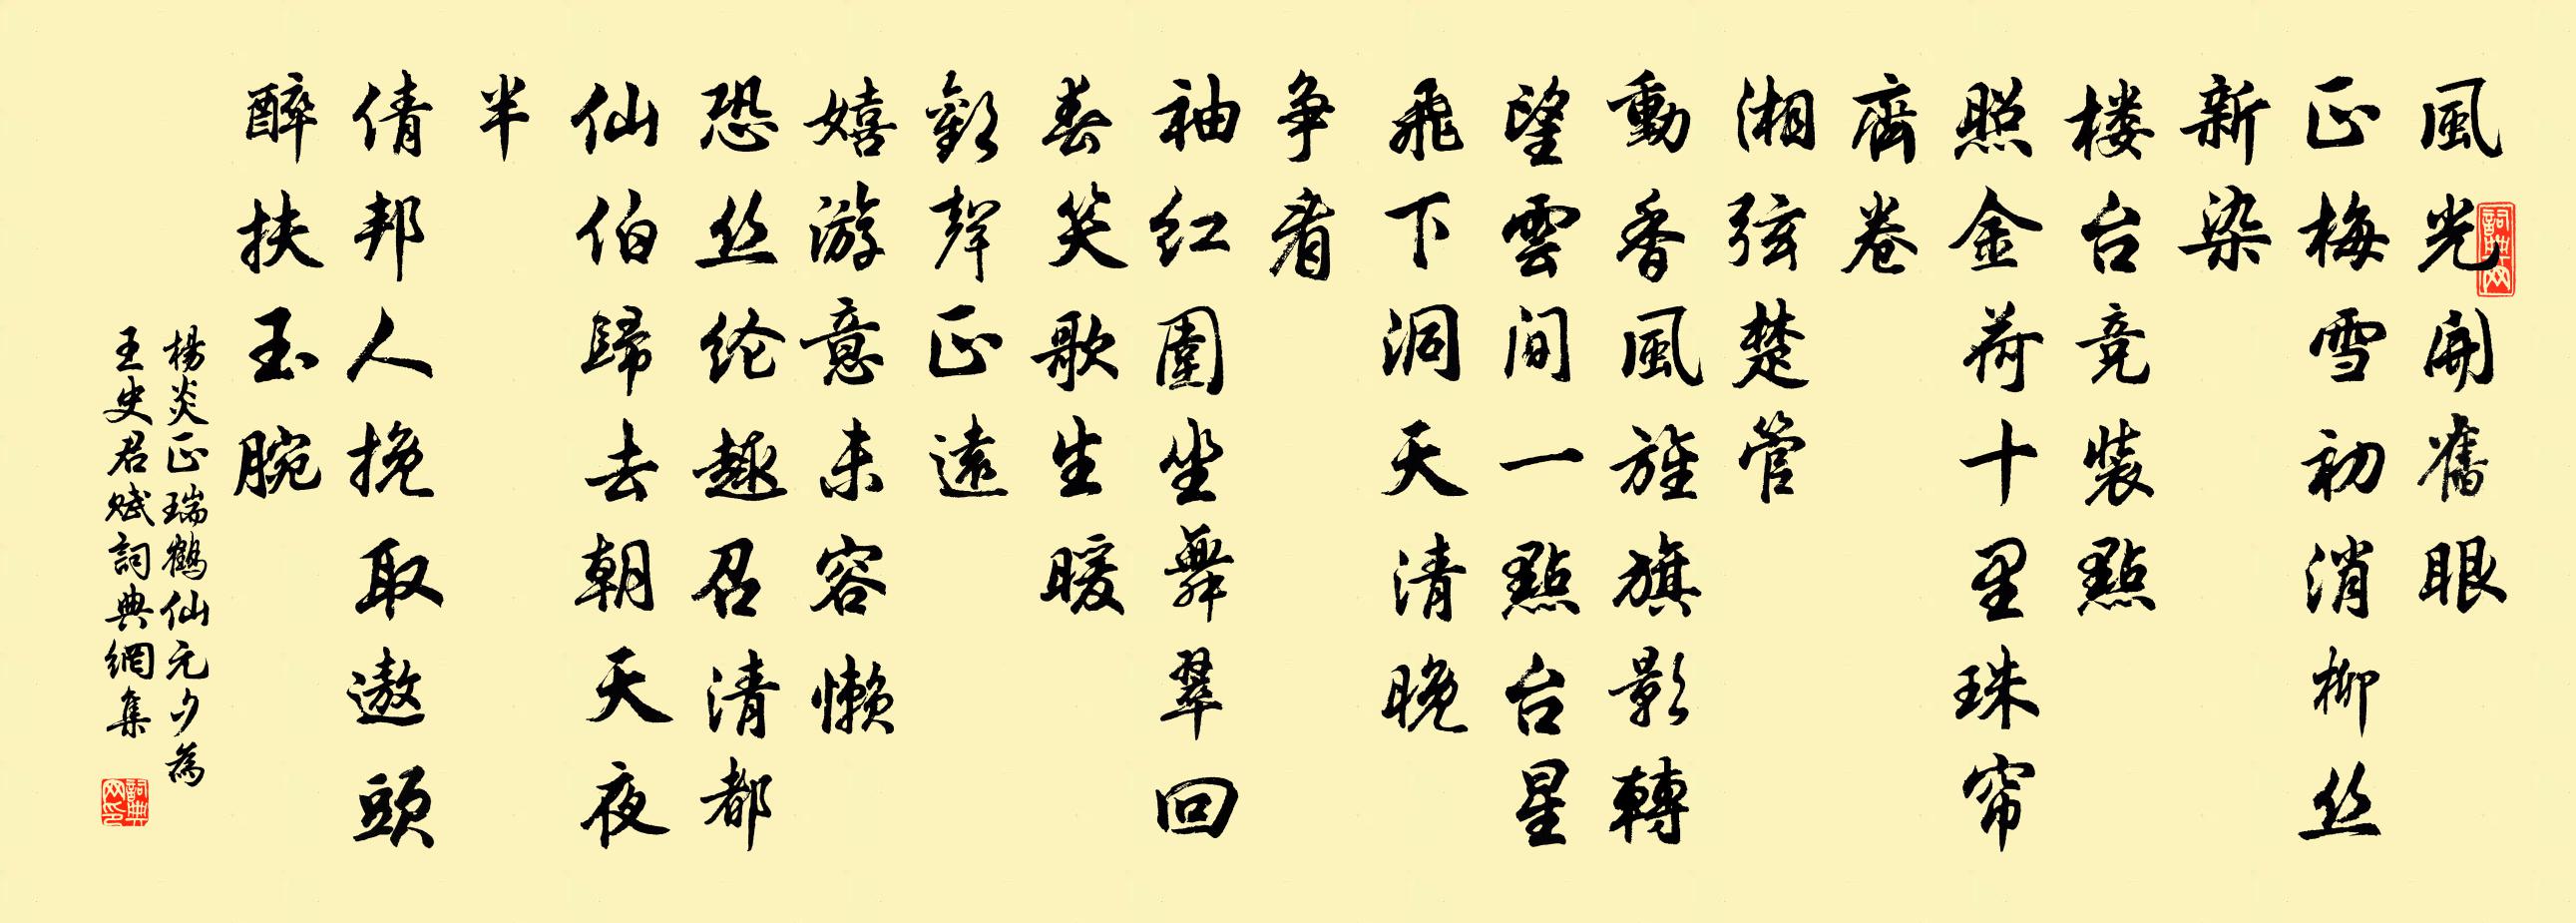 風光開舊眼
正梅雪初消柳丝
新染
楼台竞装點
照金荷十里珠帘
齊卷
湘弦楚管
動香風旌旗影轉
望雲间一點台星
飛下洞天清晚
争看
袖红圍坐舞翠回
春笑歌生暖
歡聲正遠
嬉游意未容懒
恐丝纶趣召清都
仙伯歸去朝天夜
半
倩邦人挽取遨頭
醉扶玉腕
楊炎正瑞鶴仙元夕為
王史君赋詞典網集
詞典网
詞典网印